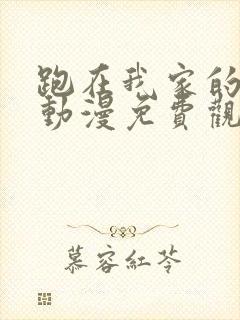 跑在我家的
動漫免費觀
慕容紅苓